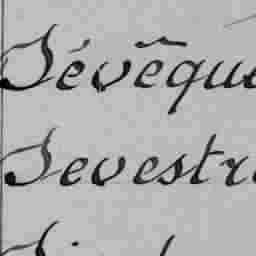 Sévêque
Sevestre